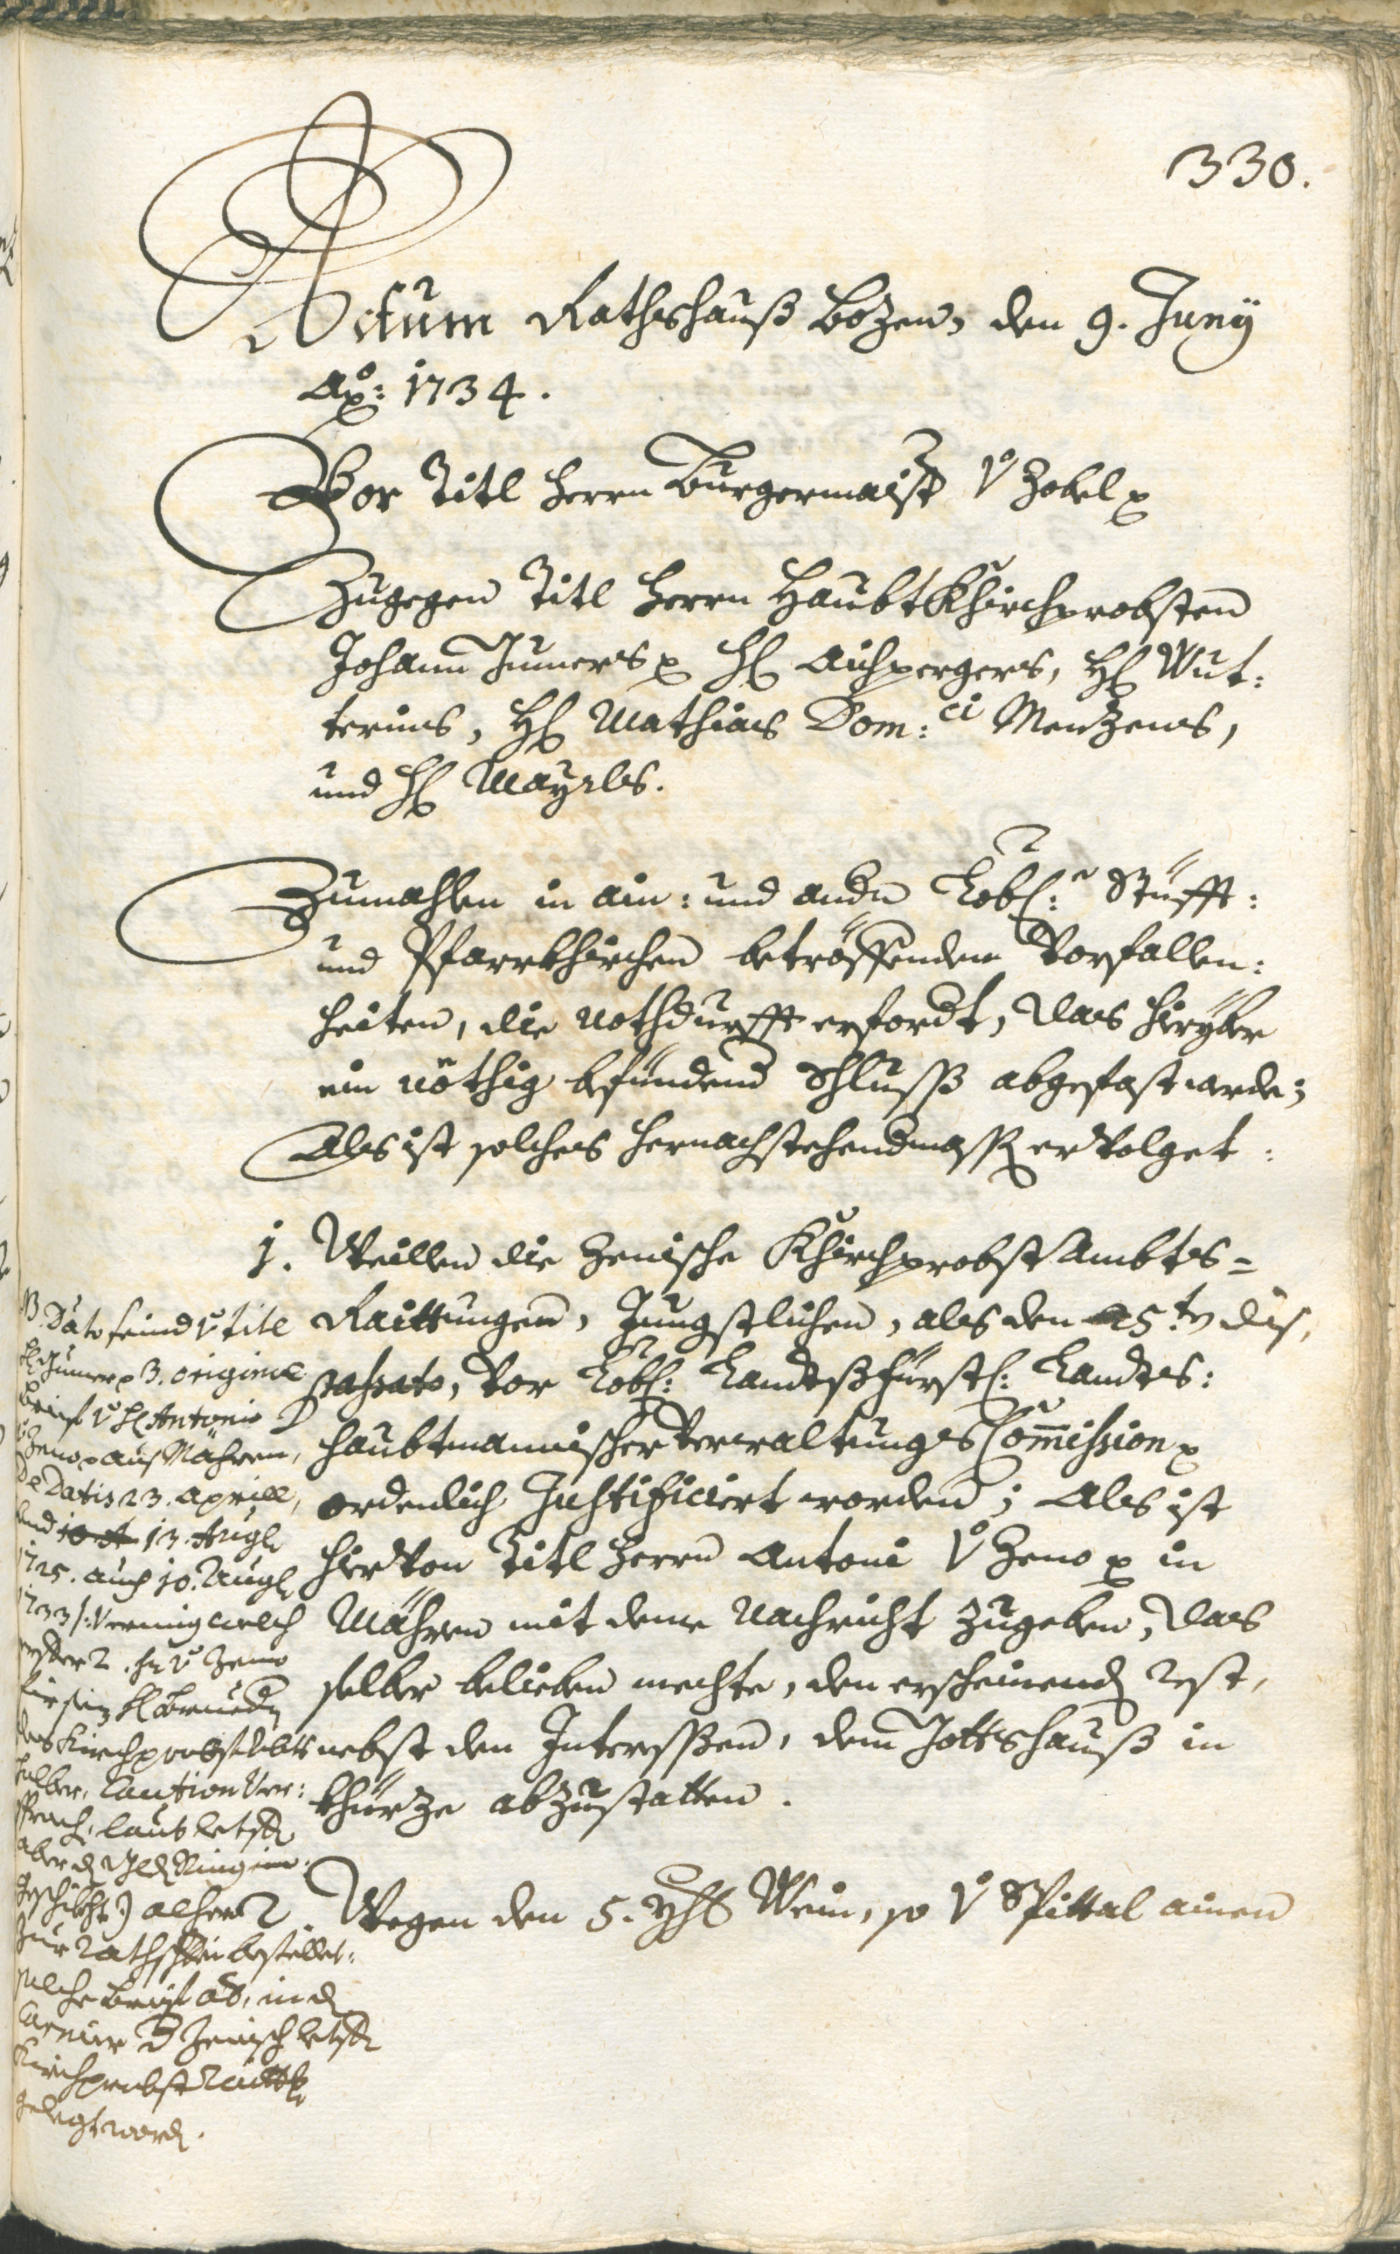 330.
Actum Rathshauß Bozen, den 9. Juny
Ao: 1734.
Vor Titl Herrn Burgermaister v Zobel
Zugegen Titl Herrn Haubtkhirchprobsten
Johann Gumers H Aichpergers, H Mut:
terins, H Mathias Dom:ci Menzens,
und H Mayrls.
Zumahlen in ain: und andn Löbl:n Stüfft:
und Pfarrkhirchen betröffenden Vorfallen:
heiten, die nothdurfft erfordt, das hieryber
ein nöthig befundend Schluß abgefast werde;
Als ist solches hernachstehendmassen ervolget:
1. Weillen die Zenische Khirchprobst Ambts=
Raittungen, Jungstlichen, als den 25.ten dis,
passato, vor Löbl: Landtsfürstl: Landts:
haubtmannischer Verwaltungs Commission
ordenlich Justificiert worden; Als ist
hiervon Titl Herrn Antoni v Zeno in
Mähren mit deme Nachricht zugeben, das
selber belieben mechte, den erscheinend rest,
nebst den Interessen, dem Gottshauß in
khürze abzustatten.
Wegen den 5. Yhrn Wein, so v Spittal ainen
NB. Dato seind v Titl
H Gumer 3. original
brief v H Antonio
v Zeno aus Mähren,
De Datis 23. Aprill,
und 13. Aug
1725. auch 10. Aug
1733 /: vermig welch
ersterer H v Zeno
für sein H Bruedn
des Kirchprobst Ambts
halber, Caution ver:
sproch, laut letst
aber d
geschikht:) alher
zur Rathsstuben bestellet:
welche brief ad, in d
Zenisch letst
Kirchprobst Raittg
gelegt word.